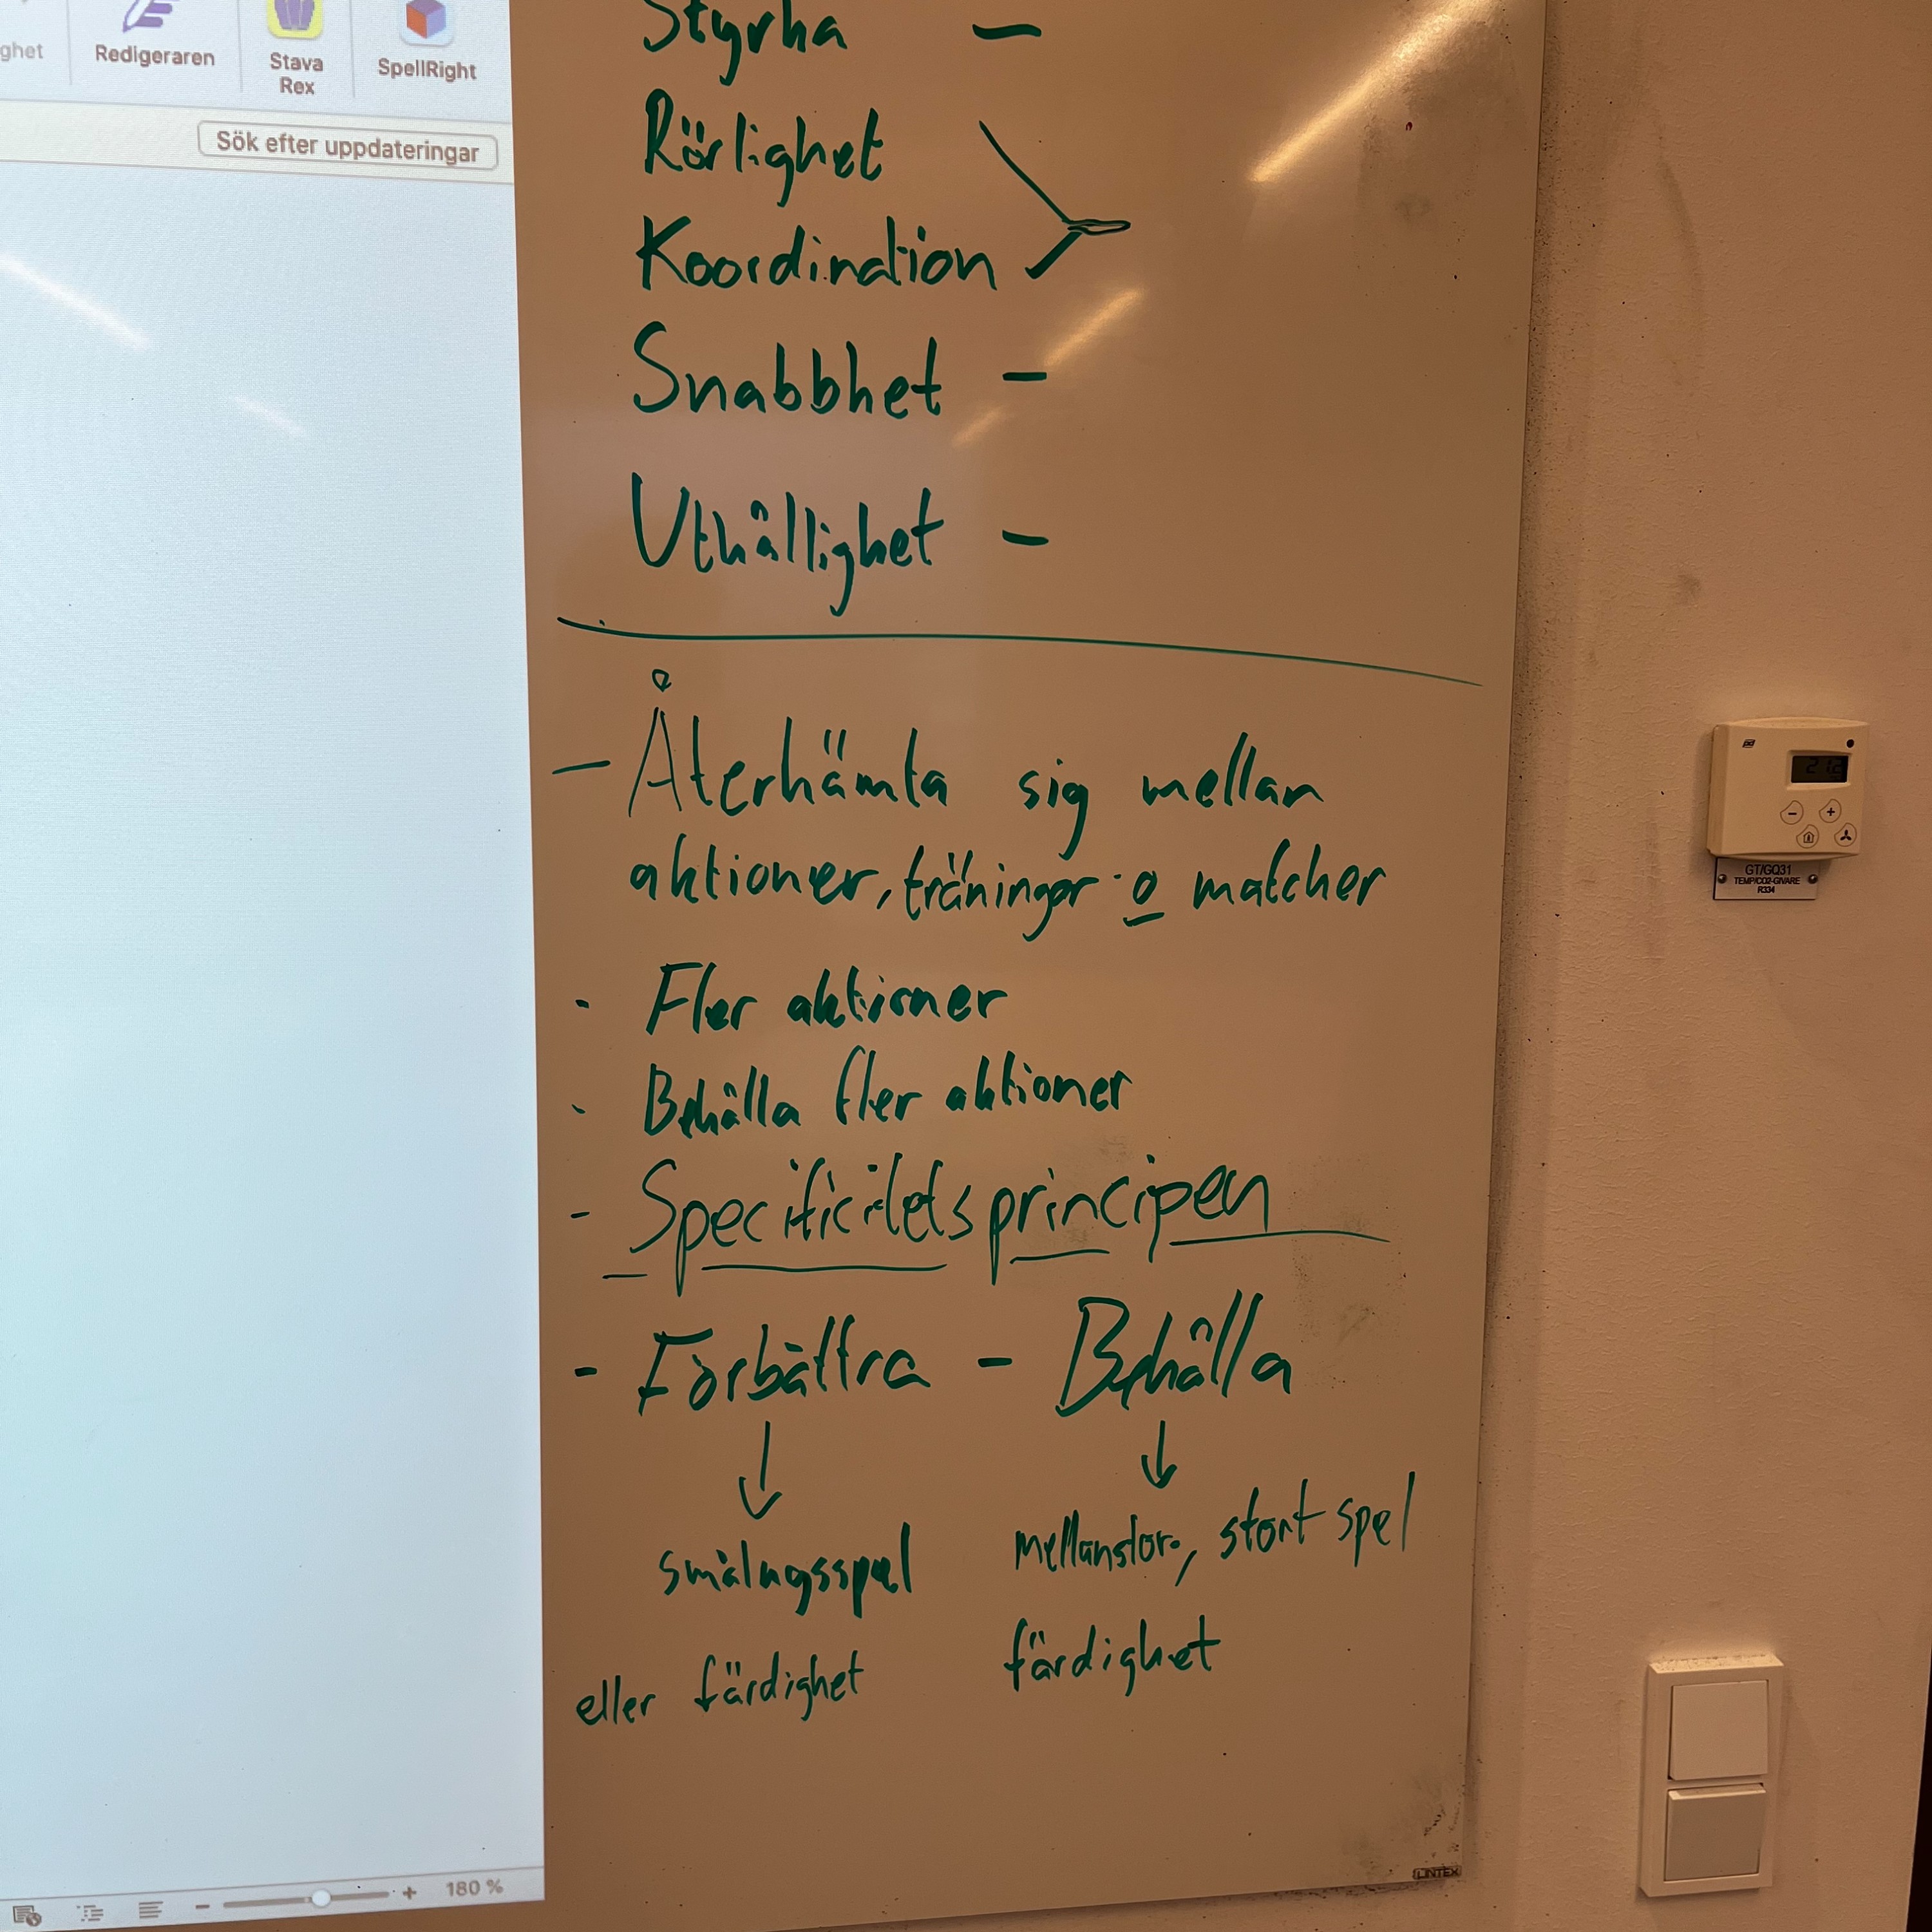 ghet
Redigeraren
Stava
Rex
SpellRight
Sök efter uppdateringar
180 %
Styrka –
Rörlighet
Koordination
Snabbhet –
Uthållighet –
– Återhämta sig mellan
aktioner, träningar o matcher
- Fler aktioner
- Behålla fler aktioner
- Specificitetsprincipen
- Förbättra – Behålla
↓ ↓
smålagsspel
eller färdighet
mellanstora, stort spel
färdighet
GT/GQ31
TEMP/CO2-GIVARE
R334
LINTEX